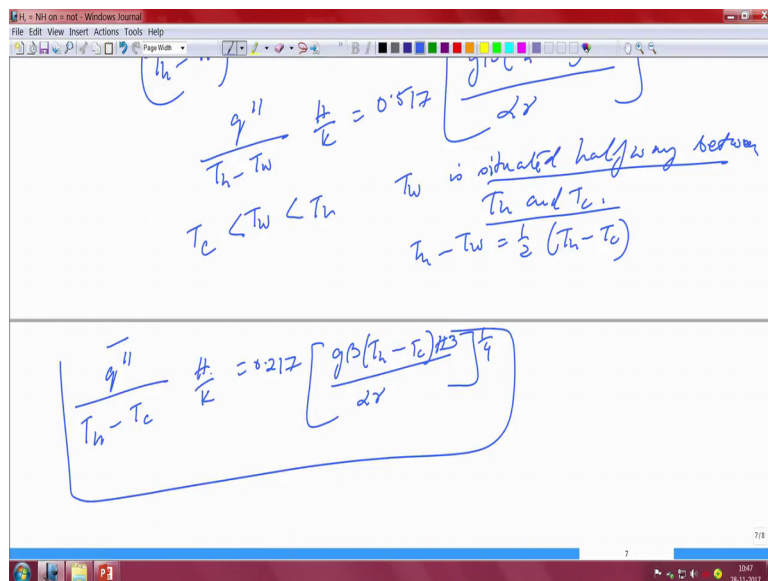 H, = NH on = not - Windows Journal
File Edit View Insert Actions Tools Help
Page Width
q'' / (Th - Tw) H/K = 0.517
αγ
Tc < Tw < Th
Tw is situated halfway between
Th and Tc.
Th - Tw = 1/2 (Th - Tc)
q'' / (Th - Tc) H/K = 0.217 [gβ(Th - Tc)H3 / αγ]^1/4
7/8
7
10:47
28-11-2017